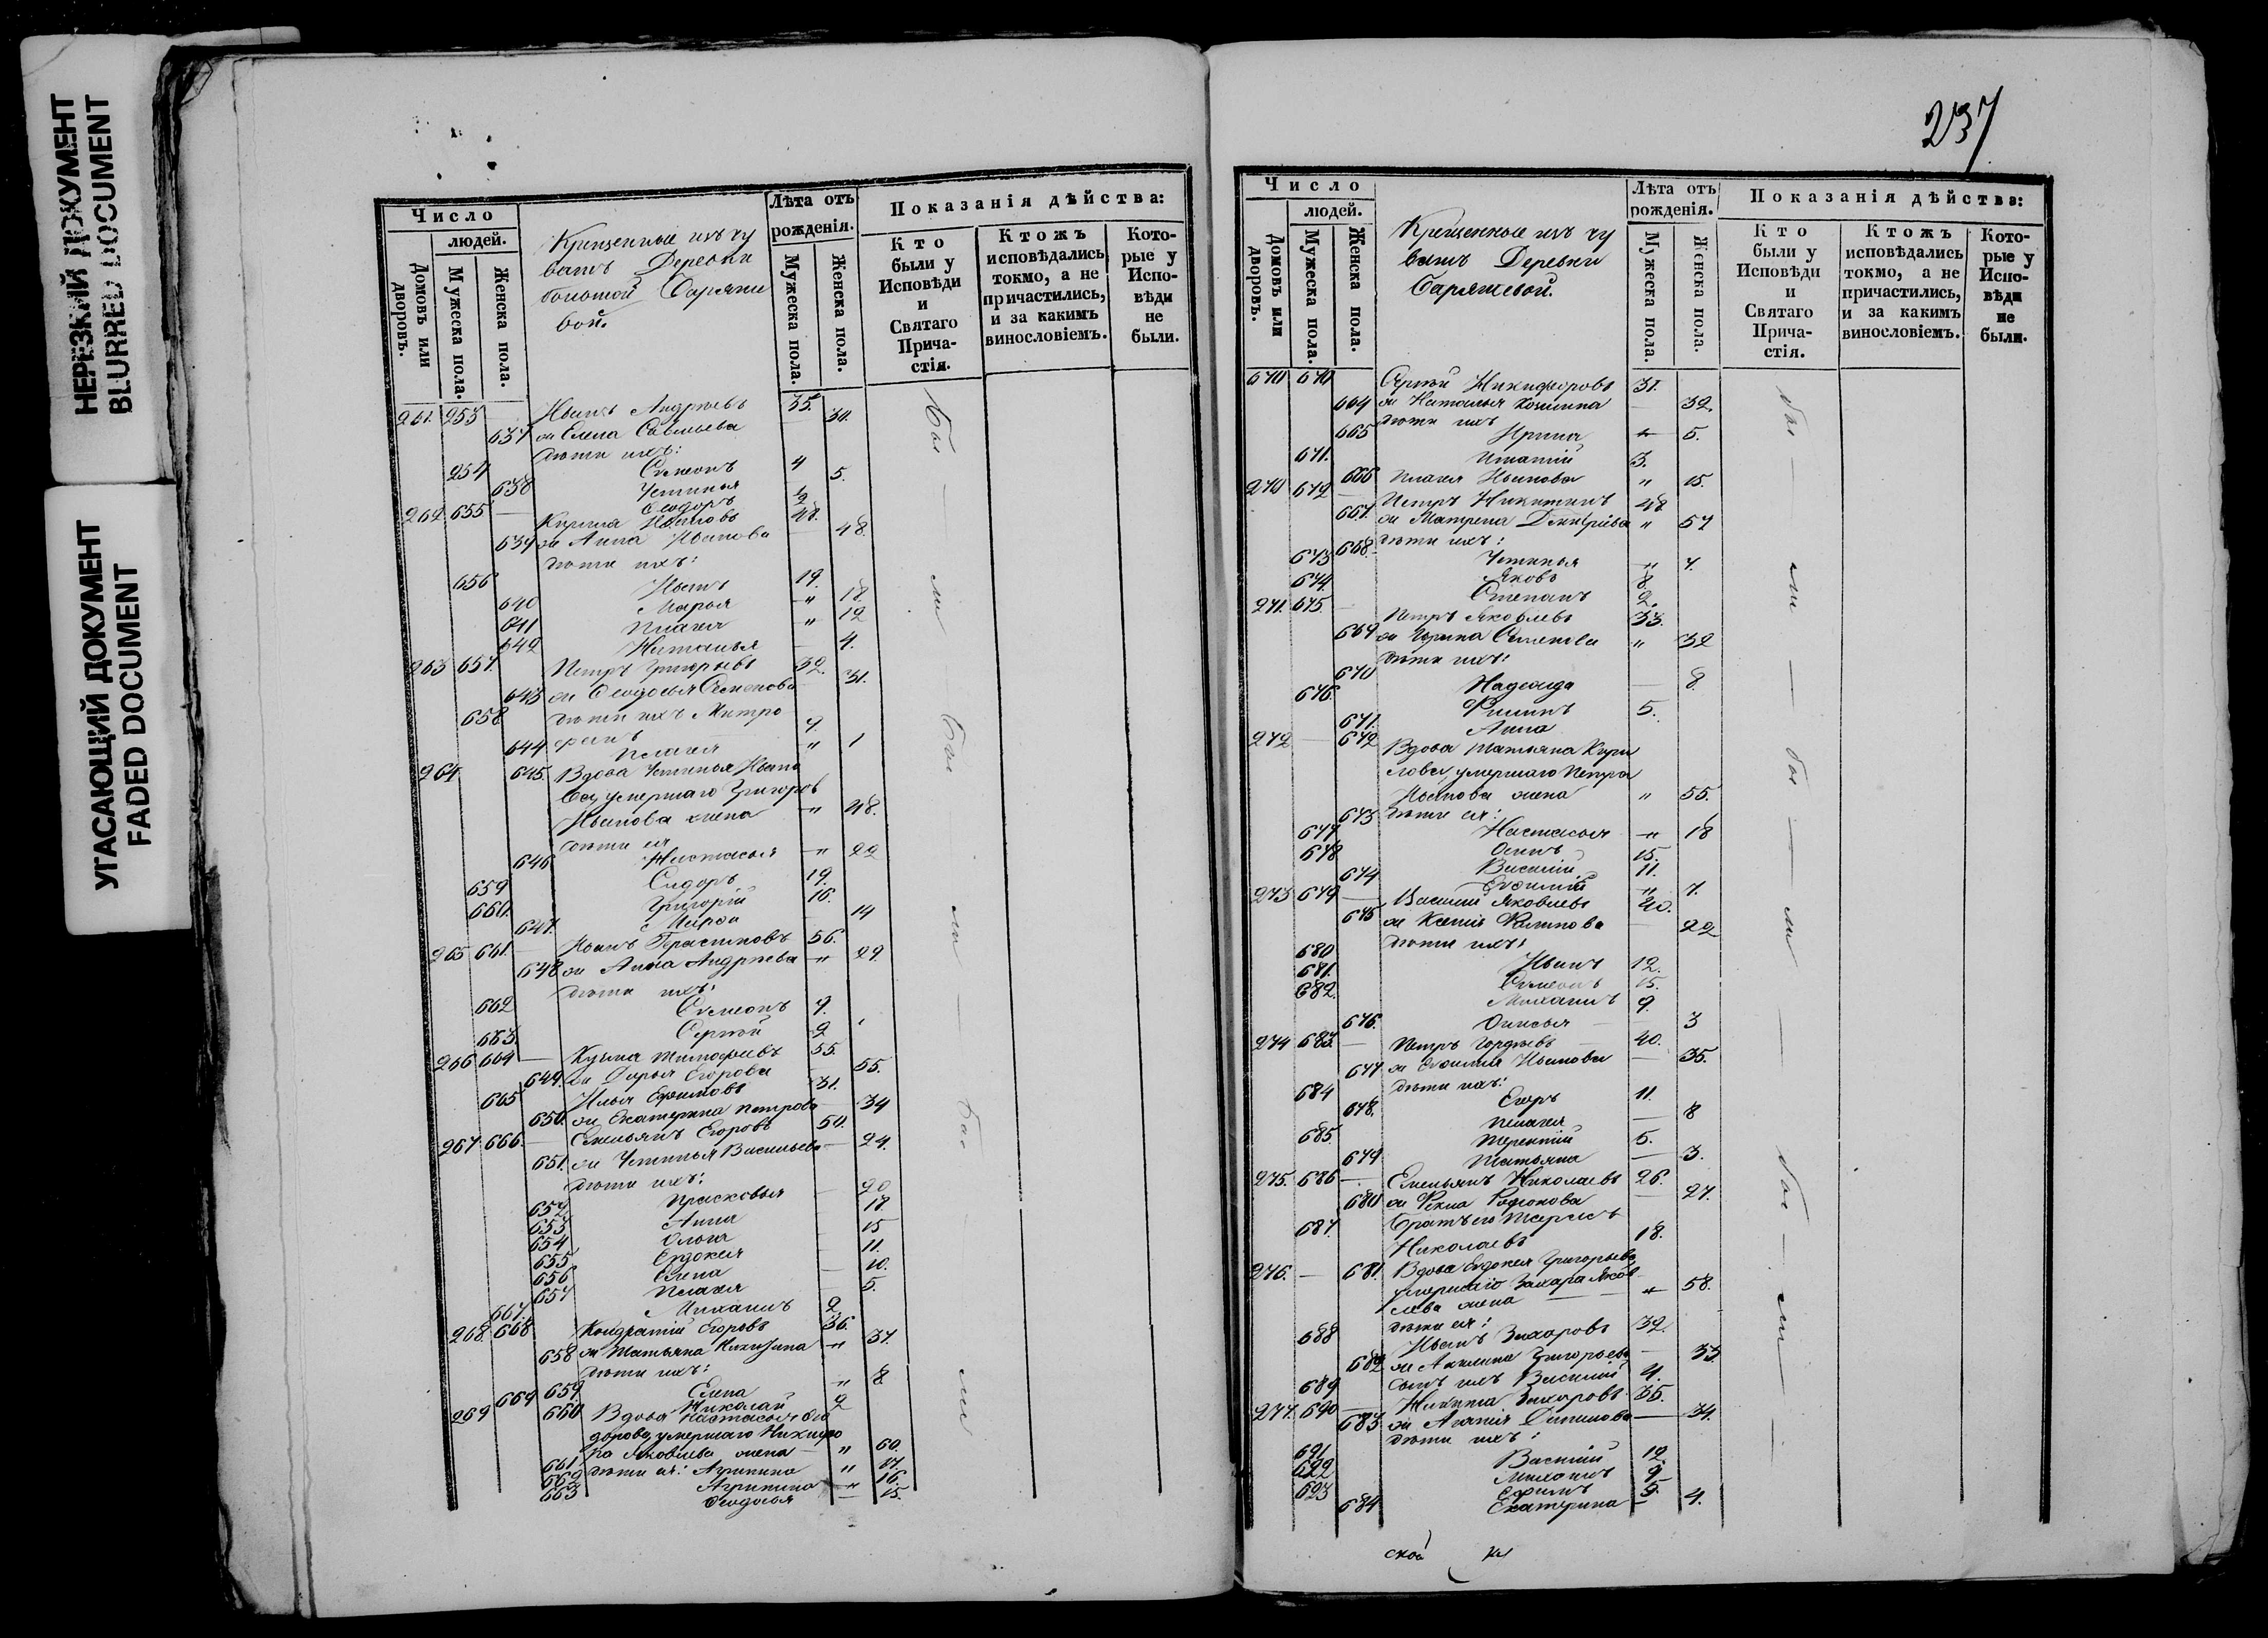 НЕРЕЗКИЙ ДОКУМЕНТ
BLURRED DOCUMENT
УГАСАЮЩИЙ ДОКУМЕНТ
FADED DOCUMENT
Число
людей.
Домовъ или дворовъ.
Мужеска пола.
Женска пола.
Крещенные изъ чу
вашъ Деревни
Лѣта отъ
рожденія.
Мужеска пола.
Женска пола.
Показанія дѣйства:
Кто были у Исповѣди и Святаго Прича- стія.
Ктожъ исповѣдались токмо, а не причастились, и за какимъ винословіемъ.
Кото- рые у Испо- вѣди не были.
261. 253 Иванъ Андреевъ 35.
637 ж Елена Савельева 34.
дѣти ихъ:
254 Семеонъ 4
638 Устинья 5.
Ѳеодоръ
262 655 48.
639 ж Анна Иванова 48.
дѣти ихъ:
656 Иванъ 19.
640 Марья " 18
641 Пелагея " 12
642 Наталья 4.
263 657. Петръ Григорьевъ 32.
643 ж Ѳеодосья Семенова 31.
658 дѣти ихъ Митро
фанъ 9.
644 Пелагея " 1
264 645. Вдова Устинья Ивано
ва, умершаго Григорья
Иванова жена " 48.
дѣти ея
646 Настасья " 22
659 Сидоръ 19.
660. Григорій 16.
647. Марѳа 14
265 661. Иванъ Герасимовъ 56.
648 ж Анна Андреева " 29.
дѣти ихъ:
662 Семеонъ 9.
663 Сергѣй 2
266 664 Кузьма Тимофеевъ 55.
649. ж Дарья Егорова 55.
665 Илья Ефимовъ 31.
650. ж Екатерина Петрова 34
267 666. Емельянъ Егоровъ 50.
651. ж Устинья Васильева 24.
дѣти ихъ:
652 Прасковья 20
653 Анна
654 Ольга 15
655 Евдокея 11.
656 Елена 10.
657 Пелагея 5.
667. Михаилъ 2
268. 668 Кондратій Егоровъ 36.
658 ж Татьяна Никитина " 37.
дѣти ихъ:
659. Елена " 8
669 Николай 2
269 660 Вдова Настасья Ѳео
дорова, умершаго Никифо
ра Яковлева жена " 60.
661. дѣти ея: Агрипина "
662 Агрипина " 16.
663 Ѳеодосья 15.
237
Число
людей.
Домовъ или дворовъ.
Мужеска пола.
Женска пола.
Крещенные изъ чу
вашъ Деревни
Баряшевой.
Лѣта отъ
рожденія.
Мужеска пола.
Женска пола.
Показанія дѣйства:
Кто были у Исповѣди и Святаго Прича- стія.
Ктожъ исповѣдались токмо, а не причастились, и за какимъ винословіемъ.
Кото- рые у Испо- вѣди не были.
670 670 Сергѣй Никифоровъ 31.
664 ж Наталья Козмина 32.
дѣти ихъ
665 Ирина 5.
671. Игнатій 3.
666 Пелагея Иванова " 15.
270 672 Петръ Никитинъ 48
667. ж Матрена Дмитріева " 57
дѣти ихъ:
668. Устинья " 7.
673 Яковъ 8
674 Степанъ 2.
271. 675. Петръ Яковлевъ 33.
669 ж Ирина Семенова " 32
дѣти ихъ:
670 Надежда 8.
676. Филипъ 5.
671. Анна
272 672 Вдова Татьяна Кири
лова, умершаго Петра
Иванова жена " 55.
дѣти ея:
673 Настасья " 18
677 Осипъ 15.
678 Василій 11.
674 Евфимія " 7.
273 679 Василій Яковлевъ 40.
675 ж Ксенія Филипова 22
дѣти ихъ:
680 Иванъ 12.
681. Семеонъ 15.
682. Михаилъ 9.
676. Анисья 3
274 683. Петръ Гордѣевъ 40.
677 ж Евфимія Иванова 35.
дѣти ихъ:
684 Егоръ 11.
678. Пелагея 8
685. Терентій 5.
679 Татьяна 3.
275. 686 Емельянъ Николаевъ 26.
680 ж Ѳекла Родіонова 27.
687. братъ его
Николаевъ 18.
276. 681. Вдова Евдокея Григорьева,
умершаго Захара Яков
лева жена " 58.
дѣти ея:
688 Иванъ Захаровъ 32.
682 ж Акилина Григорьева 33
689 сынъ ихъ Василій 4.
277. 690 Никита Захаровъ 35.
683. ж Агафія Данилова 34.
дѣти ихъ:
691 Василій 12.
692 Михаилъ 9.
693 Ефимъ
684 Екатерина 4.